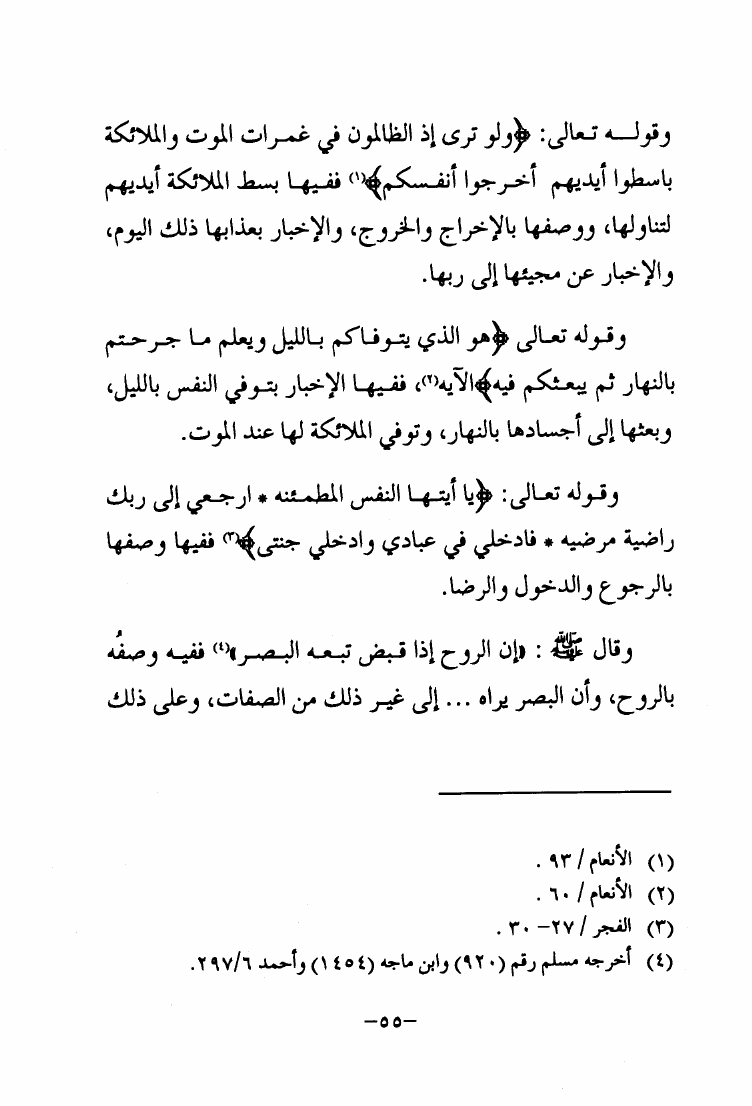 وقولـــه تـعالى: ﴿ولو ترى إذ الظالمون في غمـرات الموت والملائكة
باسطوا أيديهم أخـرجوا أنفـسكم﴾(١) ففـيهـا بسط الملائكة أيديهم
لتناولها، ووصفها بالإخراج والخروج، والإخبار بعذابها ذلك اليوم،
والإخبار عن مجيئها إلى ربها.
وقـوله تعـالى ﴿هو الذي يتـوفـاكم بـالليل ويعلم مـا جـرحـتم
بالنهار ثم يبعـثكم فيه﴾الآيه(٢)، ففـيهـا الإخبار بتـوفي النفس بالليل،
وبعثها إلى أجسادها بالنهار، وتوفي الملائكة لها عند الموت.
وقـوله تعـالى: ﴿يا أيتـهـا النفس المطمـئنه * ارجـعي إلى ربك
راضية مرضيه * فادخلي في عبادي وادخلي جنتى﴾(٣) ففيها وصفها
بالرجوع والدخول والرضا.
وقال ﷺ : «إن الروح إذا قـبض تبـعـه البـصـر»(٤) ففيـه وصفُه
بالروح، وأن البصر يراه ... إلى غيـر ذلك من الصفات، وعلى ذلك
(١) الأنعام / ٩٣ .
(٢) الأنعام / ٦٠ .
(٣) الفجر / ٢٧– ٣٠ .
(٤) أخرجه مسلم رقم (٩٢٠) وابن ماجه (١٤٥٤) وأحمد ٢٩٧/٦.
–٥٥–